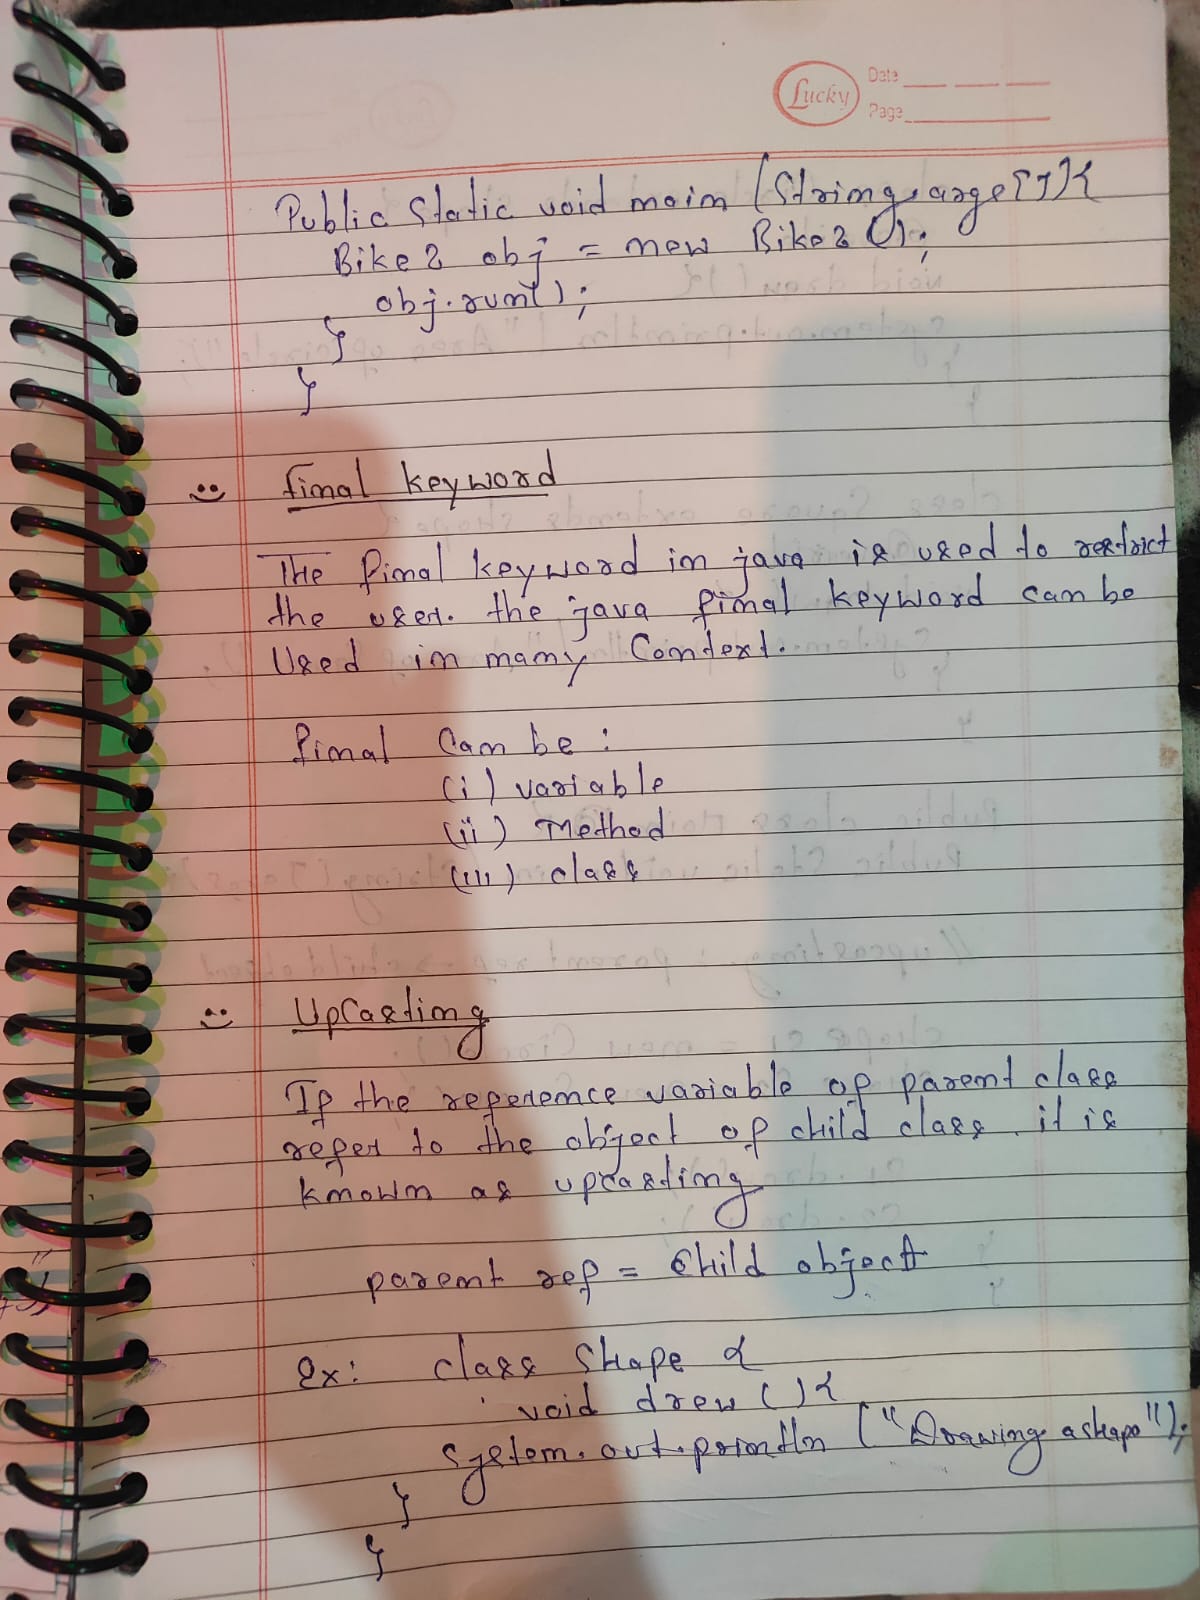 Lucky
Date
Page
Public Static void main (String args[]){
Bike2 obj = new Bike2();
obj.run();
}
}
final keyword
THe final keyword in java is used to restrict
the user. the java final keyword can be
Used in many Context.
final Can be :
(i) variable
(ii) Method
(iii) class
UpCasting
If the reference variable of parent class
refer to the object of child class. it is
known as upcasting
parent ref = Child object
Ex: class Shape {
void drew (){
System.out.println ("Drawing a shape");
}
}